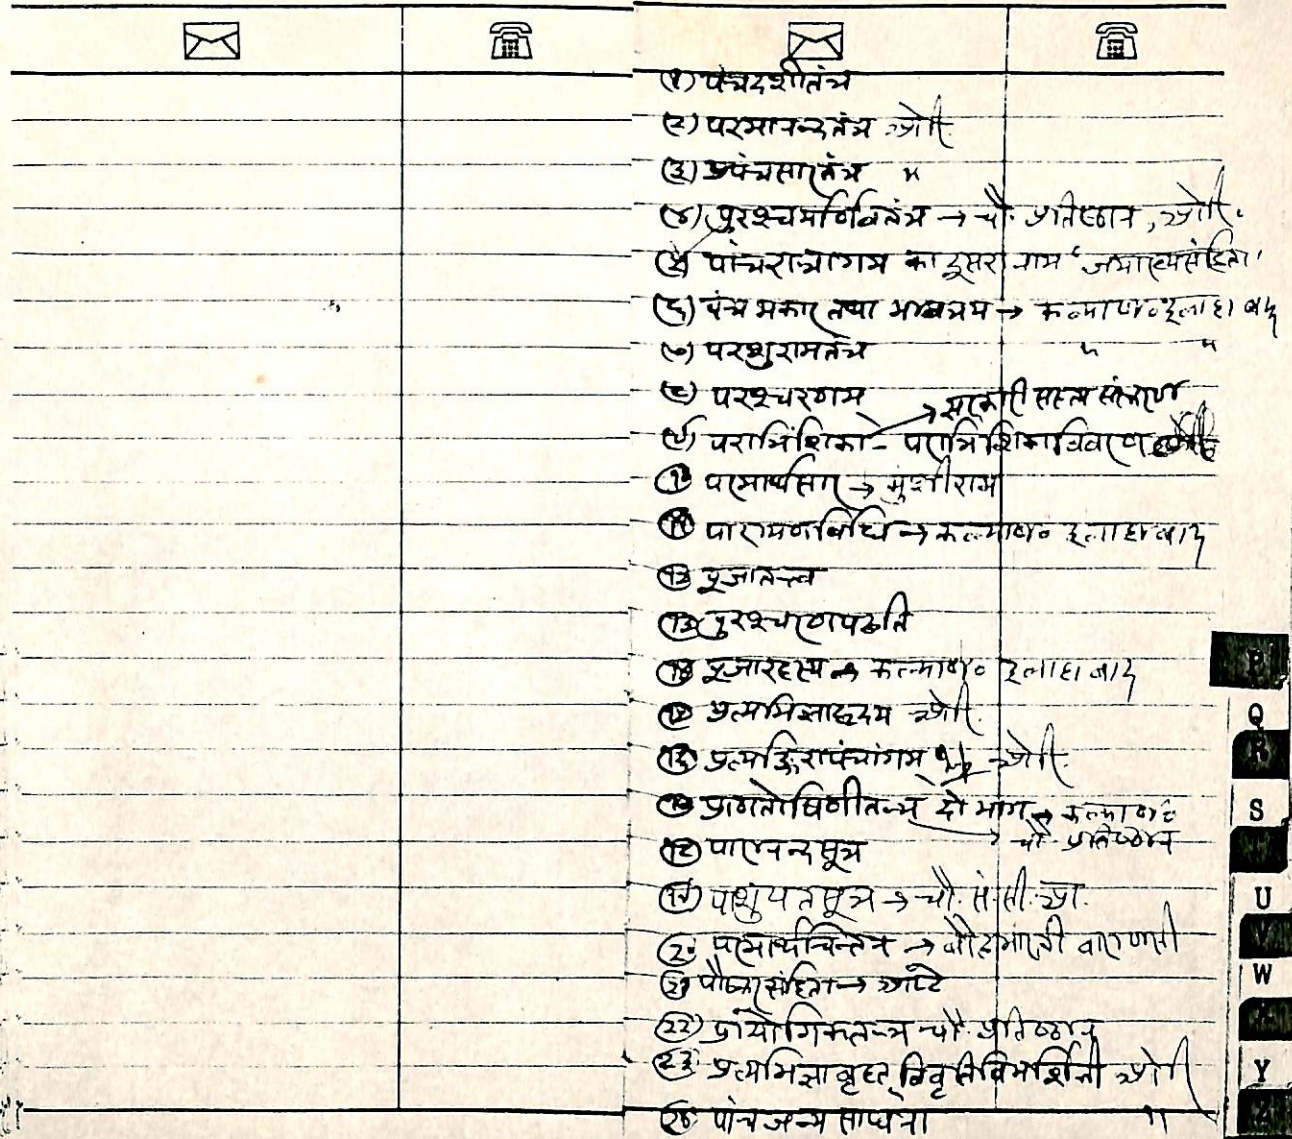 (१) पंचदशीतंत्र
(२) परमानन्दतंत्र
(३) प्रपंचसारतंत्र "
(४) पुरश्चर्यार्णवतंत्र → चौ. प्रतिष्ठान,
(५) पांचरात्रागम का दूसरा नाम 'जयाख्यसंहिता'
(६) पंच मकार तथा भावत्रय → कल्याण० इलाहाबाद
(७) परशुरामतंत्र " "
(८) परश्चरणम्
→
(९) परात्रिंशिका - परात्रिंशिकाविवरण
(१०) परमार्थसार → मुंशीराम
(११) पारायणविधि → कल्याण० इलाहाबाद
(१२) पूजातत्त्व
(१३) पुरश्चरणपद्धति
(१४) पूजारहस्य → कल्याण० इलाहाबाद
(१५) प्रत्यभिज्ञाहृदय
(१६) प्रत्यङ्गिरापंचांगम्
(१७) प्राणतोषिणीतन्त्र दो भाग → कल्याण०
→ चौ. प्रतिष्ठान
(१८) पारानन्दसूत्र
(१९) पाशुपतसूत्र → चौ. सं. सी.
(२०) परमार्थचिन्तन → वाराणसी
(२१) पौष्करसंहिता →
(२२) प्रायोगिकतन्त्र चौ. प्रतिष्ठान
(२३) प्रत्यभिज्ञाबृहत् विवृतिविमर्शिनी
(२४) पांचजन्य साधना "
P
Q
R
S
U
V
W
Y
Z